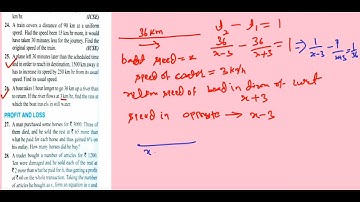 24. A train covers a distance of 90 km at a uniform
speed. Had the speed been 15 km/hr more, it would
have taken 30 minutes less for the journey. Find the
original speed of the train. (ICSE)
25. A plane left 30 minutes later than the scheduled time
and in order to reach its destination, 1500 km away in
time has to increase its speed by 250 km/hr from its
usual speed. Find its usual speed. (CBSE)
26. A boat takes 1 hour longer to go 36 km up a river than
to return. If the river flows at 3 km/hr, find the rate at
which the boat travels in still water.
PROFIT AND LOSS
27. A man purchased some horses for ₹ 3000. Three of
them died, and he sold the rest at ₹ 65 more than
what he paid for each horse and thus gained 6% on
his outlay. How many horses did he buy?
28. A trader bought a number of articles for ₹ 1200.
Ten were damaged and he sold each of the rest at
₹ 2 more than what he paid for it, thus getting a profit
of ₹ 60 on the whole transaction. Taking the number
of articles he bought as x, form an equation in x and
36 km
t₂ - t₁ = 1
36/x-3 - 36/x+3 = 1 ⇒ 1/x-3 - 1/x+3 = 1/36
speed = x
speed of = 3 km/h
speed of boat in
x+3
speed in opposite → x-3
x